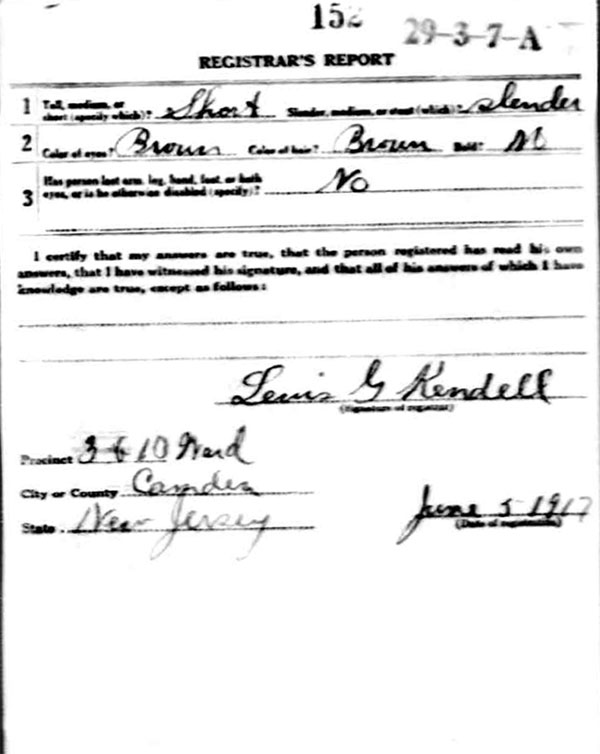 152 29-3-7-A
REGISTRAR'S REPORT
1 Tall, medium, or
short (specify which)? Short Slender, medium, or stout (which)? Slender
2 Color of eyes? Brown Color of hair? Brown Bald?
Has person lost arm, leg, hand, foot, or both
3 eyes, or is he otherwise disabled (specify)? No
I certify that my answers are true, that the person registered has read his own
answers, that I have witnessed his signature, and that all of his answers of which I have
knowledge are true, except as follows:
Lewis G Kendell
(Signature of registrar)
Precinct 10 Ward
City or County Camden
State New Jersey
June 5 1917
(Date of registration)